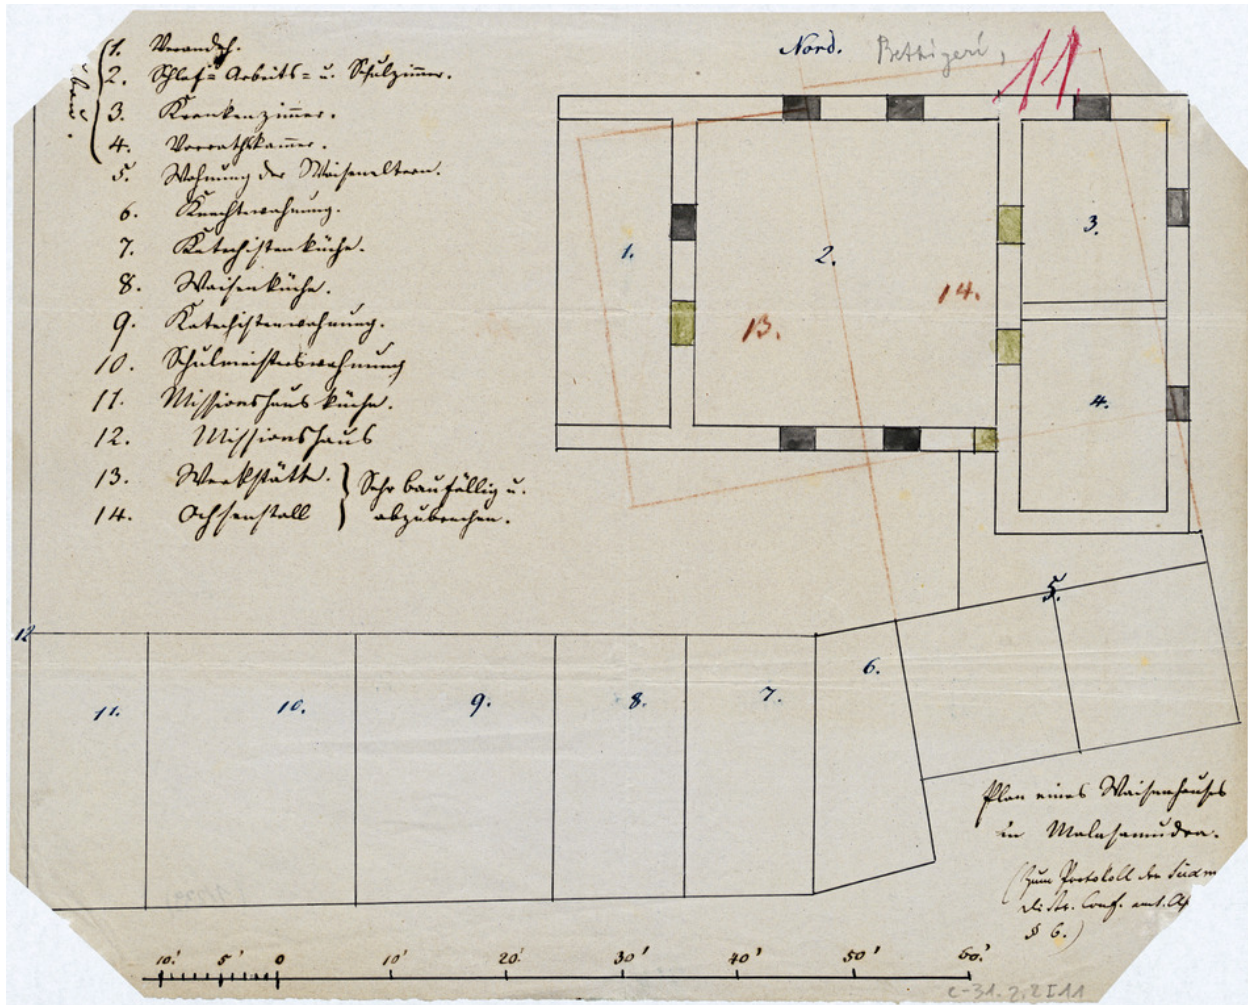 Nord. Bettigeri, 11.
1. Verandah.
2. Schlaf= Arbeits= u. Schulzimmer.
3. Krankenzimmer.
4. Vorrathskammer.
5. Wohnung der Waiseneltern.
6. Knechtwohnung.
7. Katechistenküche.
8. Waisenküche.
9. Katechistenwohnung.
10. Schulmeisterswohnung
11. Missionshausküche.
12. Missionshaus
13. Werkstätte. } Sehr baufällig u.
14. Ochsenstall } abzubrechen.
1.
2.
3.
13.
14.
4.
5.
12
6.
7.
8.
9.
10.
11.
Plan eines Waisenhauses
in Malasamudra.
(Zum Protokoll der Südm
Distr. Conf.
§ 6.)
10.' 5' 0 10' 20' 30' 40' 50' 60'
C-31.2,2 I 11